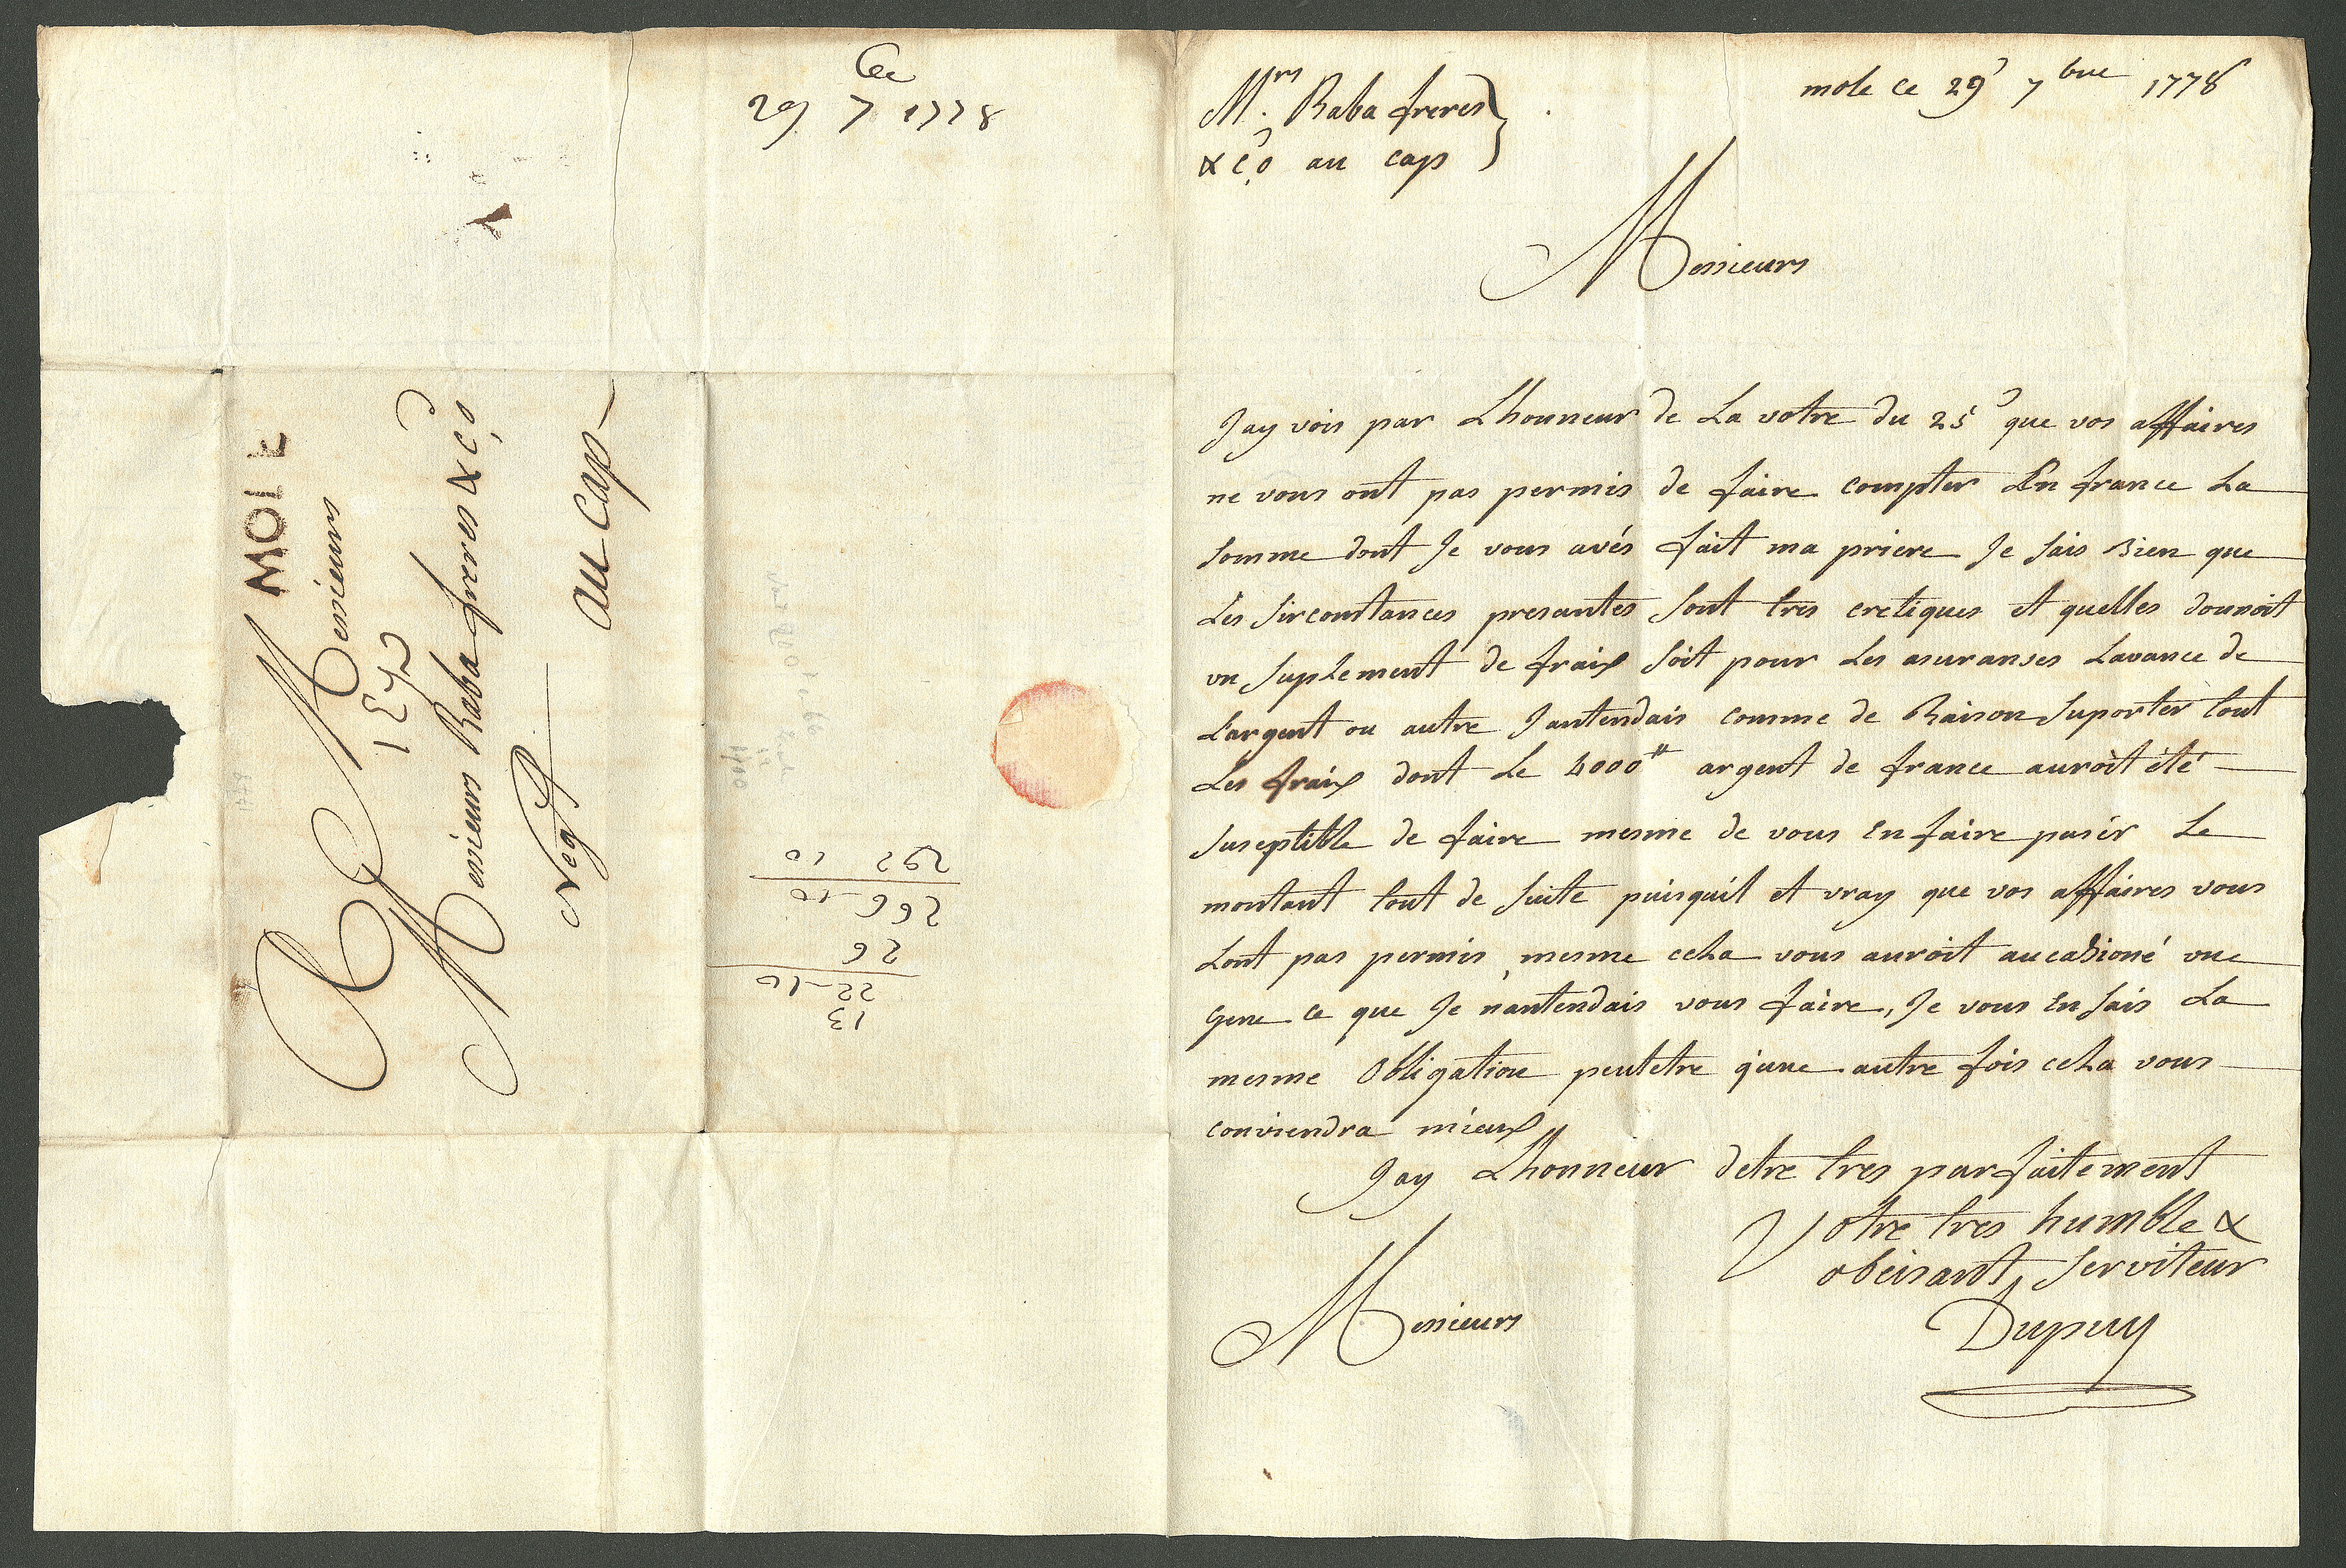 29 7 1778
MOLE
Messieurs
Messieurs Raba freres & Co
Negts
au Cap
292 10
266-10
26
22-10
13
Mrs. Raba freres
& Co au cap
mole ce 29 7bre 1778
Messieurs
Jay vois par Lhonneur de La votre du 25 que vos affaires
ne vous ont pas permis de faire compter En france La
somme dont Je vous avés fait ma priere Je sais bien que
Les sirconstances presantes sont tres cretiques et quelles donnoit
un suplement de fraix soit pour Les asuranses Lavance de
Largent ou autre Jantendais comme de Raison suporter tout
Les fraix dont Le 4000# argent de france auroit été
suseptible de faire mesme de vous en faire pasér Le
montant tout de suite puisquil et vray que vos affaires vous
Lont pas permis, mesme cela vous auroit aucasioné une
gene ce que Je nantendais vous faire, Je vous en sais La
mesme obligation peutetre q'une autre fois cela vous
conviendra mieux
Jay Lhonneur detre tres parfaitement
Votre tres humble &
obeisant serviteur
Messieurs
Dupuy